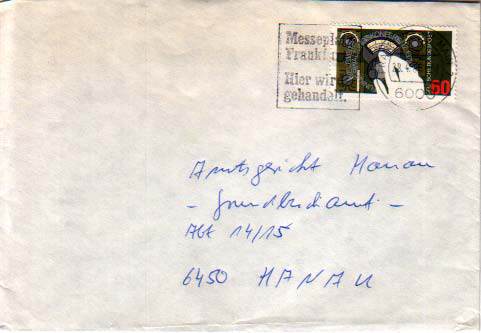 Messepl
Frankfu
Hier wir
gehandelt.
60
6000
Amtsgericht Hanau
- Grundbuchamt -
Abt 14/15
6450 HANAU